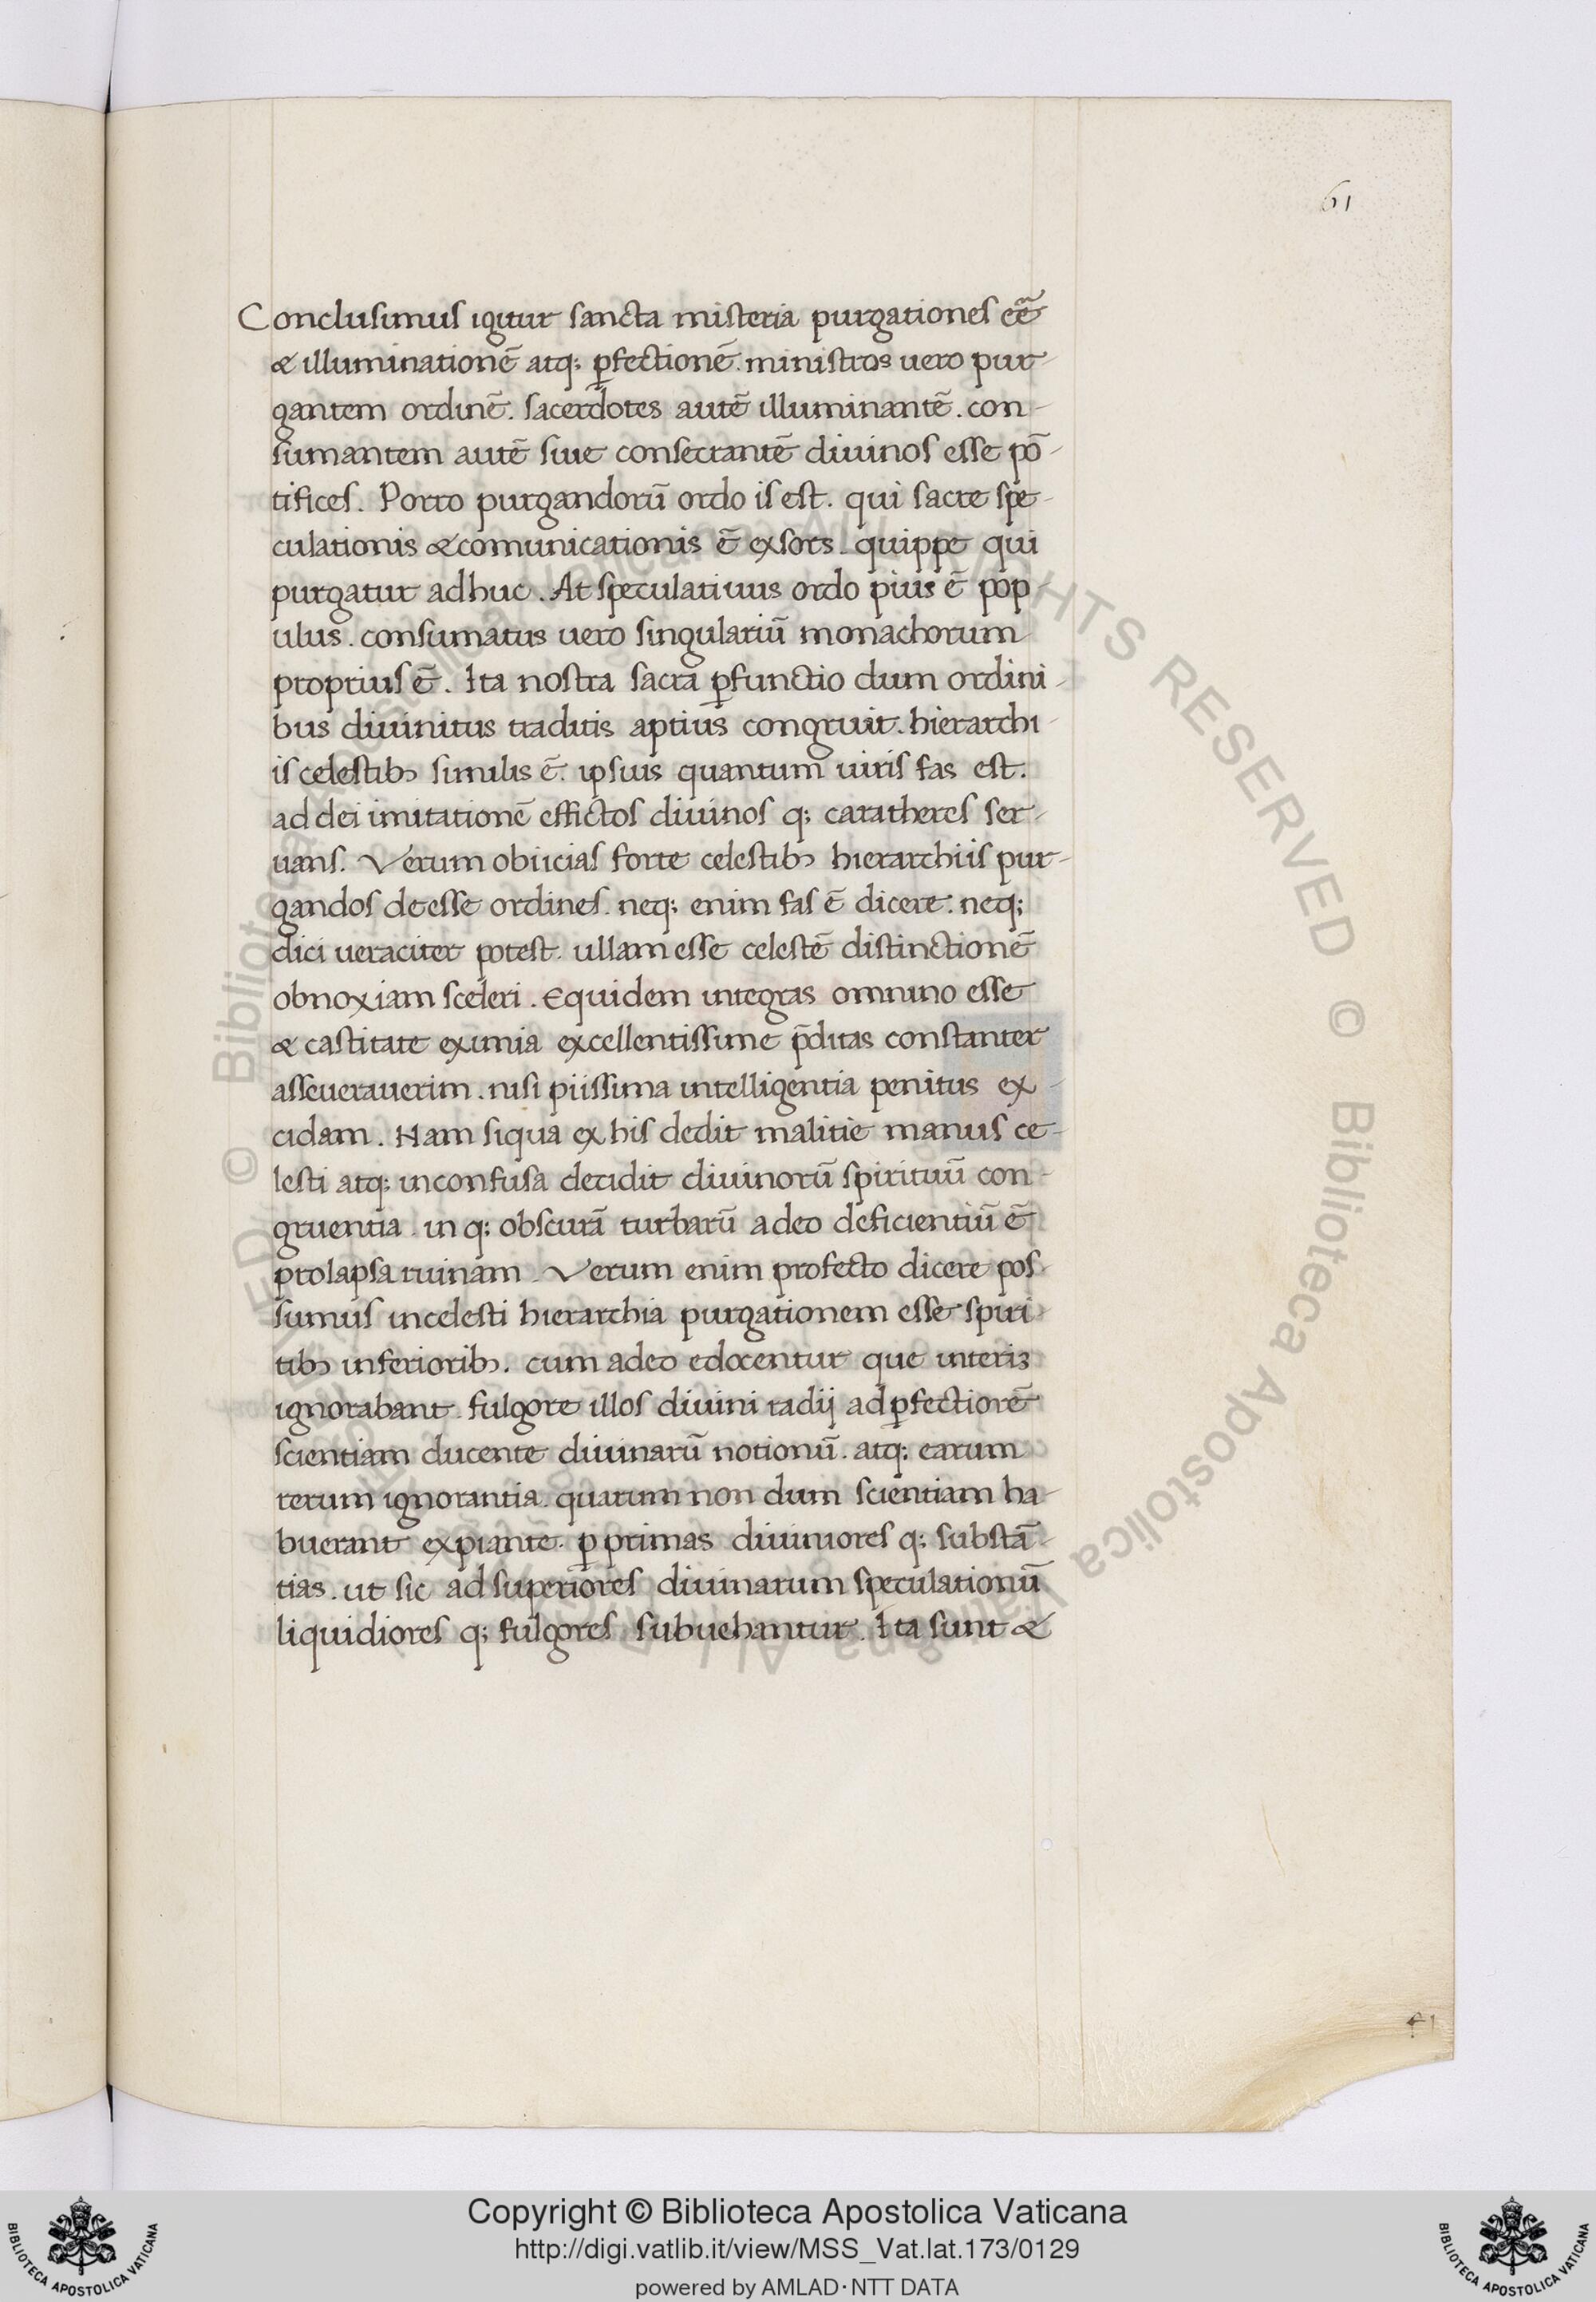 61
Conclusimus igitur sancta misteria purgationes eē̃
& illuminationē atq; ꝑfectionē. ministros uero pur-
gantem ordinē. sacerdotes autē illuminantē. con-
sumantem autē siue consecrantē diuinos esse pō-
tifices. Porro purgandorū ordo is est. qui sacre spe-
culationis & comunicationis ē exsors. quippe qui
purgatur adhuc. At speculatiuus ordo pius ē pop-
ulus. consumatus uero singulariū monachorum
proprius ē. Ita nostra sacra ꝑfunctio dum ordini-
bus diuinitus traditis aptius congruit. hierarchi-
is celestibꝫ similis ē. ipsius quantum uiris fas est.
ad dei imitationē effictos diuinos q; caratheres ser-
uans. Verum obiicias forte celestibꝫ hierarchiis pur-
gandos deesse ordines. neq; enim fas ē dicere. neq;
dici ueraciter potest. ullam esse celestē distinctionē
obnoxiam sceleri. Equidem integras omnino esse
& castitate eximia excellentissime p̄ditas constanter
asseuerauerim. nisi piissima intelligentia penitus ex-
cidam. Nam siqua ex his dedit malitie manus ce-
lesti atq; inconfusa decidit diuinorū spirituū con-
gruentia. in q; obscurā turbarū adeo deficientiū ē
prolapsa ruinam. Verum enim profecto dicere pos-
sumus in celesti hierarchia purgationem esse spiri-
tibꝫ inferioribꝫ. cum adeo edocentur que interiꝫ
ignorabant. fulgore illos diuini radij ad ꝑfectiorē
scientiam ducente diuinarū notionū. atq; earum
rerum ignorantia. quarum non dum scientiam ha-
buerant expiante. ꝑ primas diuiniores q; substā-
tias. ut sic ad superiores diuinarum speculationū
liquidiores q; fulgores subuehantur. Ita sunt &
Copyright © Biblioteca Apostolica Vaticana
http://digi.vatlib.it/view/MSS_Vat.lat.173/0129
powered by AMLAD·NTT DATA
BIBLIOTECA APOSTOLICA VATICANA
BIBLIOTECA APOSTOLICA VATICANA